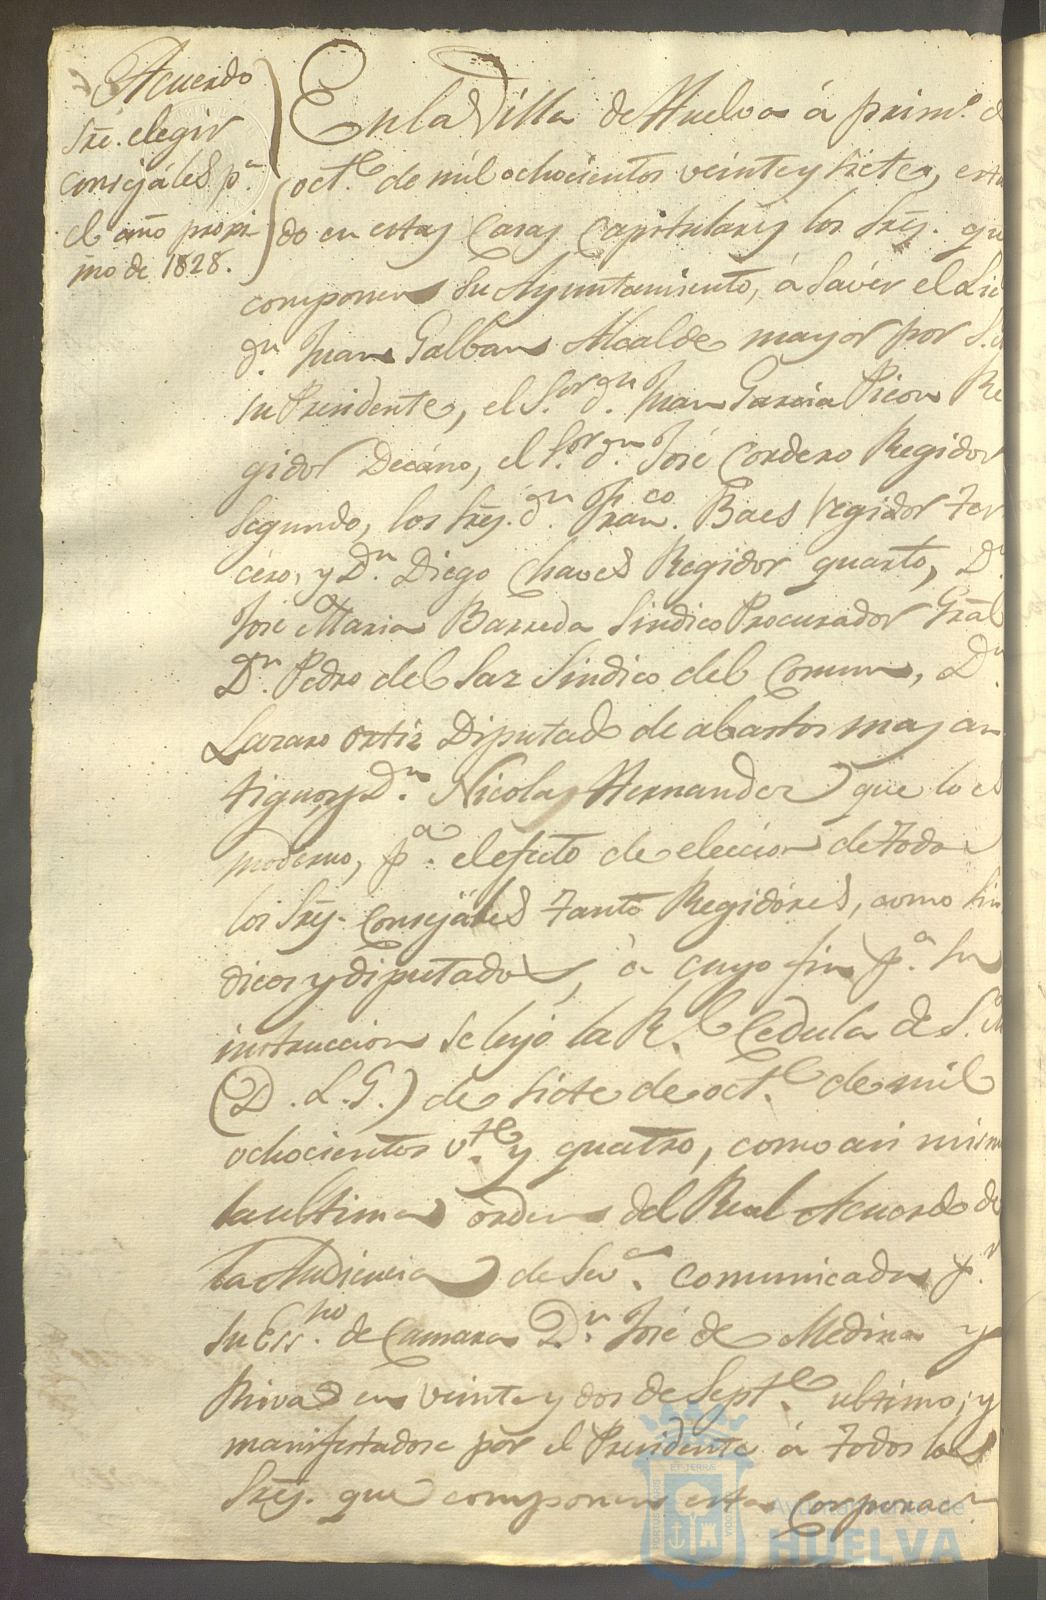 Acuerdo
Sre. elegir
consejáles pª.
el año proxi
mo de 1828.
En la Villa de Huelva á prim.º d
oct.e de mil ochocientos veinte y siete, estan
do en estas Casas Capitulares los Sres. que
componen su Ayuntamiento, á savér el Lic
dn. Juan Galban Alcalde mayor por S.M
su Presidente, el S.or dn. Juan Garcia Picon Re
gidor Decáno, el S.or dn. José Cordero Regidor
Segundo, los Sres. dn. Fran.co Baes regidor Ter
céro, y Dn. Diego Chaves Regidor quarto, Dn.
José Maria Barreda Sindico Procurador Gral
Dn. Pedro del Saz Sindico del Comun, Dn.
Lazaro Ortiz Diputado de abastos mas an
tiguo, y Dn. Nicolas Hernandez que lo es
moderno, pª. el efecto de eleccion de todos
los Sres. Consejáles tanto Regidóres, como Sin
dicos y diputados, á cuyo fin pª. su
instruccion se leyó la R.l Cedula de S.M
(D.L.G.) de siete de oct.e de mil
ochocientos v.te y quatro, como asi mism
la ultima orden del Real Acuerdo de
la Audiencia de Sevª. comunicada pr.
su Ess.no de Camara Dn. José de Medina y
Rivas en veinte y dos de Sept.e ultimo; y
manifestadose por el Presidente á todos los
Sres. que componen esta Corporacn.
Ayuntamiento de
HUELVA